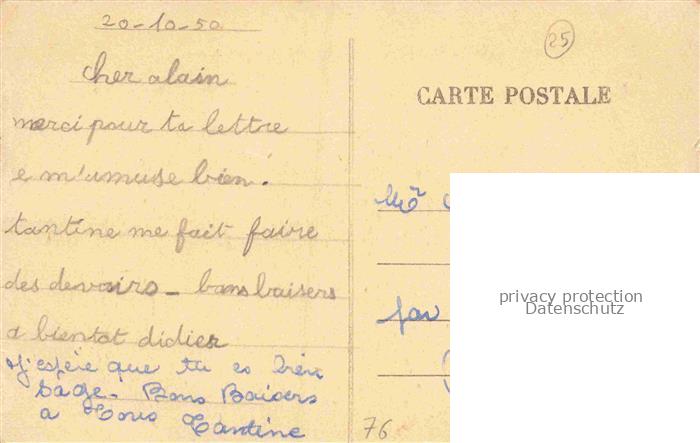 20-10-50
25
cher alain
CARTE POSTALE
merci pour ta lettre
e m'amuse bien.
tantine me fait faire
des devoirs _ bons baisers
a bientot didier
j'espère que tu es bien
sage. Bons Baisers
a Tous Tantine
76
privacy protection
Datenschutz